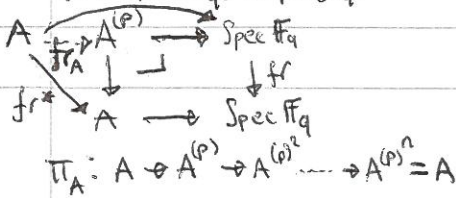 A fr_A A^(p) → Spec 𝔽_q
fr* ↓ ↓ fr
A → Spec 𝔽_q
π_A : A → A^(p) → A^(p)^2 ..... → A^(p)^n = A